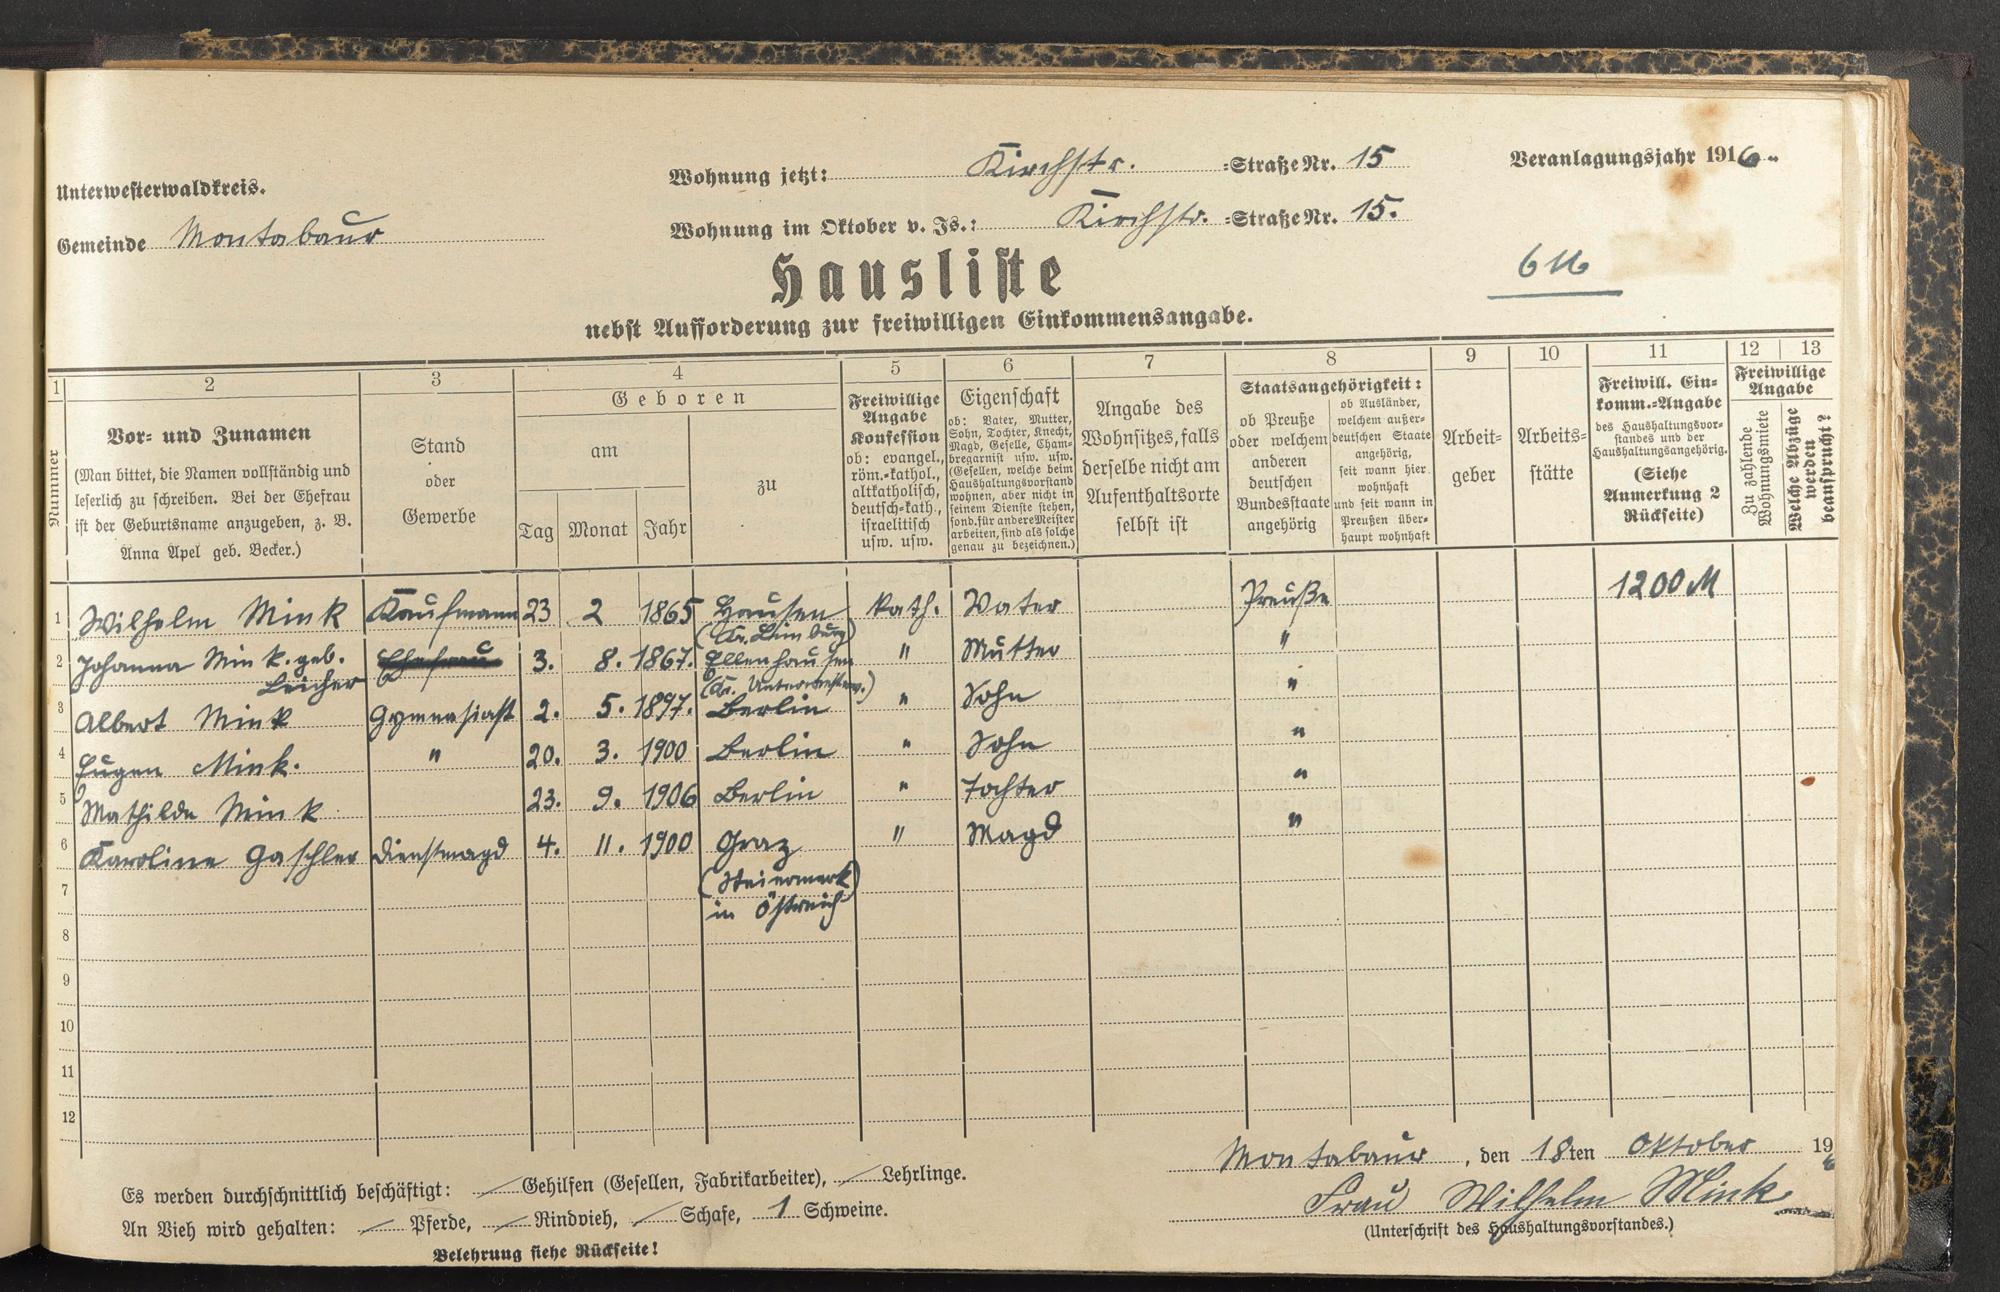 Unterwesterwaldkreis.
Gemeinde Montabaur
Wohnung jetzt: Kirchstr. =Straße Nr. 15
Wohnung im Oktober v. Js.: Kirchstr. =Straße Nr. 15.
Veranlagungsjahr 1916
Hausliste
nebst Aufforderung zur freiwilligen Einkommensangabe.
1
Nummer
2
Vor- und Zunamen
(Man bittet, die Namen vollständig und
leserlich zu schreiben. Bei der Ehefrau
ist der Geburtsname anzugeben, z. B.
Anna Apel geb. Becker.)
3
Stand
oder
Gewerbe
4
Geboren
am
Tag Monat Jahr
zu
5
Freiwillige
Angabe
Konfession
ob: evangel.,
röm.-kathol.,
altkatholisch,
deutsch-kath.,
israelitisch
usw. usw.
6
Eigenschaft
ob: Vater, Mutter,
Sohn, Tochter, Knecht,
Magd, Geselle, Cham-
bregarnist usw. usw.
(Gesellen, welche beim
Haushaltungsvorstand
wohnen, aber nicht in
seinem Dienste stehen,
sond. für andere Meister
arbeiten, sind als solche
genau zu bezeichnen.)
7
Angabe des
Wohnsitzes, falls
derselbe nicht am
Aufenthaltsorte
selbst ist
8
Staatsangehörigkeit:
ob Preuße
oder welchem
anderen
deutschen
Bundesstaate
angehörig
ob Ausländer,
welchem außer-
deutschen Staate
angehörig,
seit wann hier
wohnhaft
und seit wann in
Preußen über-
haupt wohnhaft
9
Arbeit-
geber
10
Arbeits-
stätte
11
Freiwill. Ein-
komm.-Angabe
des Haushaltungsvor-
standes und der
Haushaltungsangehörig.
(Siehe
Anmerkung 2
Rückseite)
12 13
Freiwillige
Angabe
Zu zahlende
Wohnungsmiete
Welche Abzüge
werden
beansprucht?
1 Wilhelm Mink Kaufmann 23 2 1865 Hausen kath. Vater Preuße 1200 M
(Kr. Limburg)
2 Johanna Mink. geb. Ehefrau 3. 8. 1867. Ellenhausen " Mutter "
Leicher (Kr. Unterwesterw.)
3 Albert Mink Gymnasiast 2. 5. 1897. Berlin " Sohn "
4 Eugen Mink. " 20. 3. 1900 Berlin " Sohn "
5 Mathilde Mink 23. 9. 1906 Berlin " Tochter "
6 Karoline Gaschler Dienstmagd 4. 11. 1900 Graz " Magd "
7 (Steiermark)
in Östreich
8
9
10
11
12
Es werden durchschnittlich beschäftigt: / Gehilfen (Gesellen, Fabrikarbeiter), / Lehrlinge.
An Vieh wird gehalten: / Pferde, / Rindvieh, / Schafe, 1 Schweine.
Belehrung siehe Rückseite!
Montabaur, den 18ten Oktober 19
Frau Wilhelm Mink
(Unterschrift des Haushaltungsvorstandes.)